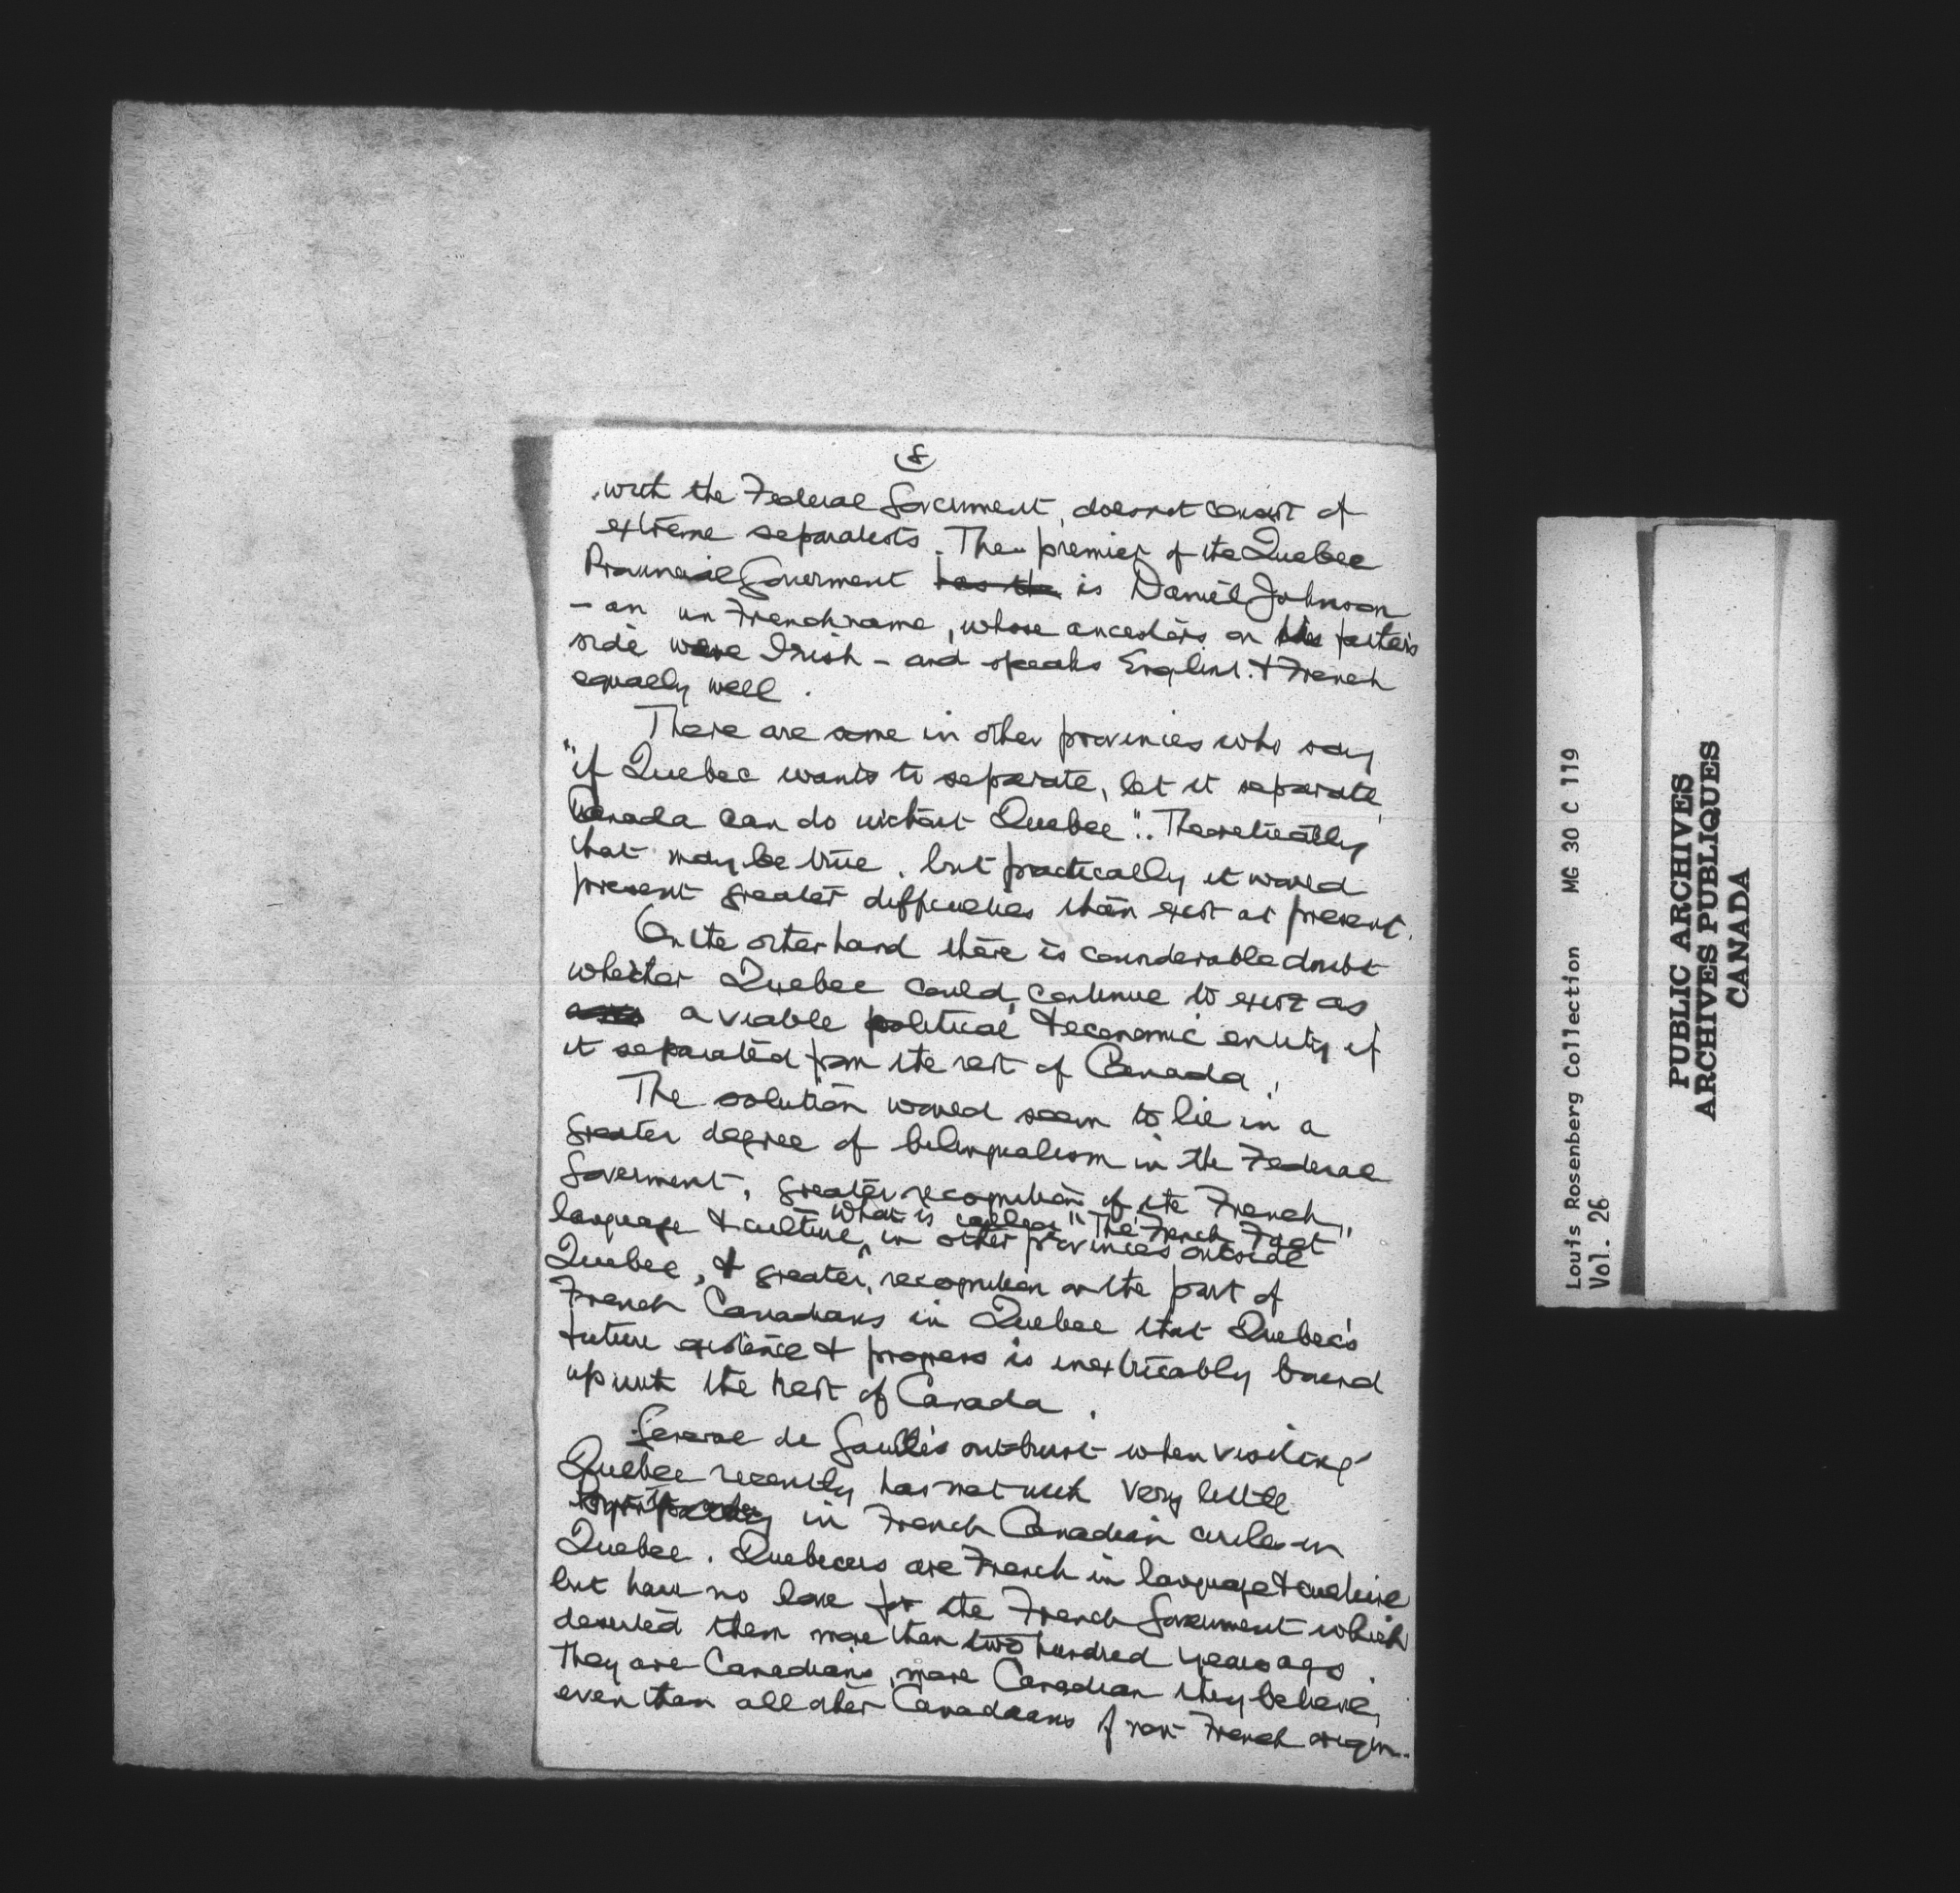 8
with the Federal Government, does not consist of
extreme separatists. The premier of the Quebec
Provincial Government has the is Daniel Johnson
- an un French name, whose ancestors on his father's
side were Irish - and speaks English & French
equally well.
There are some in other provinces who say
"if Quebec wants to separate, let it separate,
Canada can do without Quebec". Theoretically
that may be true, but practically it would
present greater difficulties than exist at present.
On the other hand there is considerable doubt
whether Quebec could continue to exist as
a viable political & economic entity if
it separated from the rest of Canada.
The solution would seem to lie in a
greater degree of bilingualism in the Federal
Government, greater recognition of the French
what is called "The French Fact"
language & culture, in other provinces outside
Quebec, & greater recognition on the part of
French Canadians in Quebec that Quebec's
future existence & progress is inextricably bound
up with the rest of Canada.
General de Gaulle's outburst when visiting
Quebec recently has met with very little
sympathy in French Canadian circles in
Quebec. Quebecers are French in language & culture
but have no love for the French Government which
deserted them more than two hundred years ago.
They are Canadians, more Canadian they believe,
even than all other Canadians of non French origin.
Louis Rosenberg Collection MG 30 C 119
Vol. 26
PUBLIC ARCHIVES
ARCHIVES PUBLIQUES
CANADA